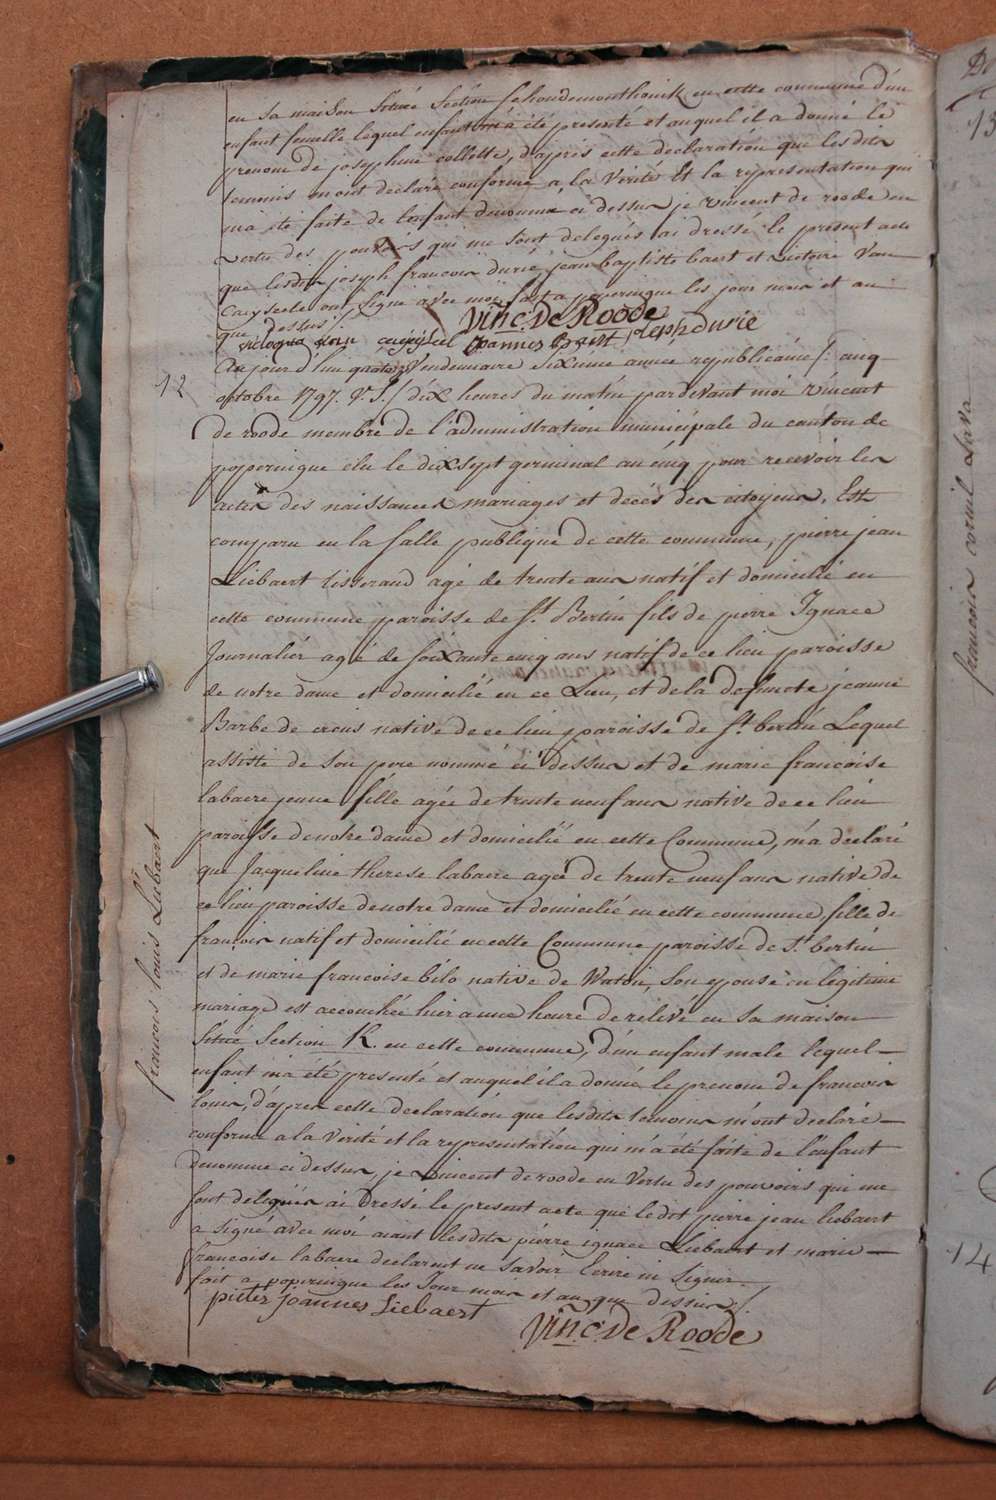 en sa maison située Section schoudemonthouck en cette commune d'un
enfant femelle lequel enfant m'a été presenté et auquel il a donné le
prenom de josephine collette, d'après cette declaration que lesdits
temoins m'ont declaré conforme a la verité Et la representation qui
m'a été faite de l'enfant denomme ci dessus je vincent de roode en
vertu des pouvoirs qui me sont delegués ai dressé le present acte
que lesdits joseph francois durié, jean baptiste baert et victoire van
Cayseele ont signé avec moi fait a poperingue les jour mois et an
que dessus /.
Vinc: De Roode
victoria van cayseel joannes baert joseph durie
12
Au jour d'hui quatorze Vendemiaire Sixieme annee republicaine /: cinq
octobre 1797. V. S. / dix heures du matin pardevant moi vincent
de roode membre de l'administration municipale du canton de
popperingue elu le dix sept germinal an cinq pour recevoir les
actes des naissances mariages et decés des citoyens, Est
comparu en la salle publique de cette commune, pierre jean
Liebaert tisserand agé de trente ans natif et domicilié en
cette commune paroisse de St. Bertin fils de pierre Ignace
Journalier agé de soixante cinq ans natif de ce lieu paroisse
de notre dame et domicilié en ce Lieu, et de la defuncte jeanne
Barbe de crous native de ce lieu paroisse de St. bertin Lequel
assisté de son pere nommé ci dessus et de marie francoise
labaere jeune fille agée de trente neuf ans native de ce lieu
paroisse de notre dame et domicilié en cette Commune, m'a declaré
que Jacqueline therese labaere agée de trente neuf ans native de
ce lieu paroisse de notre dame et domicilié en cette commune, fille de
francois natif et domicilié en cette Commune paroisse de St. bertin
et de marie francoise bélo native de Watou, son epouse en legitime
mariage est accouchée hier a une heure de relivé en sa maison
située Section K. en cette commune, d'un enfant male lequel
enfant m'a été presenté et auquel il a donné le prenom de francois
louis, d'apres cette declaration que lesdits temoins m'ont declaré
conforme a la verité et la representation qui m'a été faite de l'enfant
denomme ci dessus, je vincent de roode en vertu des pouvoirs qui me
sont delegués ai dressé le present acte que ledit pierre jean liebaert
a signé avec moi aiant lesdits pierre ignace Liebaert et marie
francoise labaere declarent ne savoir Ecrire ni Signer.
fait a poperingue les Jour mois et an que dessus /.
pieter joannes Liebaert
Vinc: De Roode
francois louis Liebaert
francois cornil
13
14